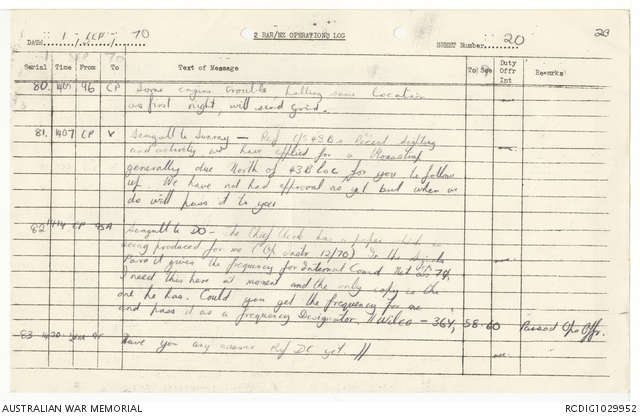 2 RAR/NZ OPERATIONS LOG
DATE 1 / SEP / 70
SHEET Number 20
20
Serial Time From To Text of Message To See Duty Offr Int Remarks
80. 1407 96 CP Some engine trouble halting same location
as first night, will send grid.
81. 1407 CP V Seagull to Sunray — Ref C/S 43B's Recent
and activity we have applied for a
generally due North of 43B loc for you to follow
up. We have not had approval as yet but when we
do will pass it to you
82 1414 CP 93A Seagull to DO — The Chief Clerk has
being produced for me (Op Instr 12/70) In the Signals
Para it gives the frequency for Internal Comd Net as 74,
I need this here at moment and the only copy is the
one he has. Could you get the frequency for me,
and pass it as a frequency Designator. // Wilco — 364, 58.60 Passed Ops Offr.
83 1420
Have you any answer Ref DC yet. //
AUSTRALIAN WAR MEMORIAL
RCDIG1029952